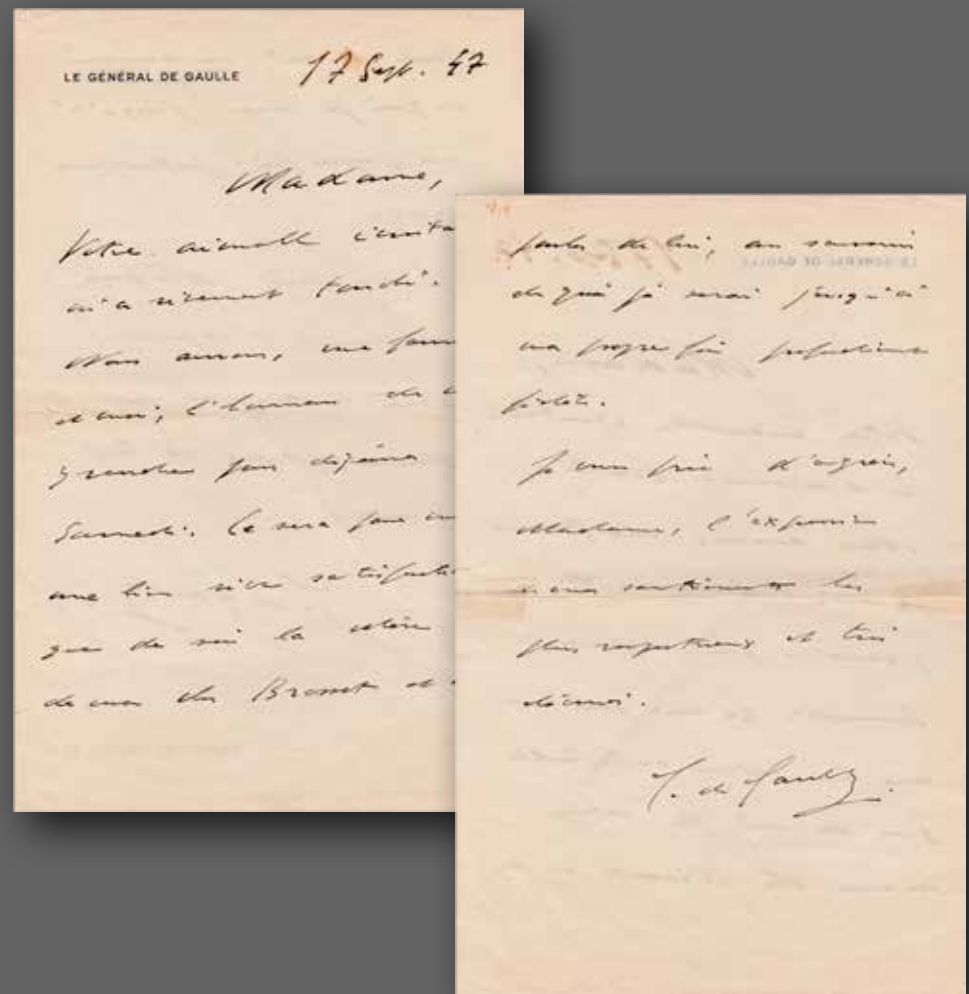 LE GÉNÉRAL DE GAULLE 17 Sept. 47
Madame,
Votre aimable invita
m'a vivement touché.
Nous aurons, ma
et moi, l'honneur de
y rendre pour déjeuner
Samedi. Ce sera pour
une bien vive satisfacti
que de voir la
de mon cher Brosset et
parler de lui, au souvenir
de qui je serai jusqu'à
ma propre fin profondément
fidèle.
Je vous prie d'agréer,
Madame, l'expression
de mes sentiments les
plus respectueux et très
dévoués.
C. de Gaulle.